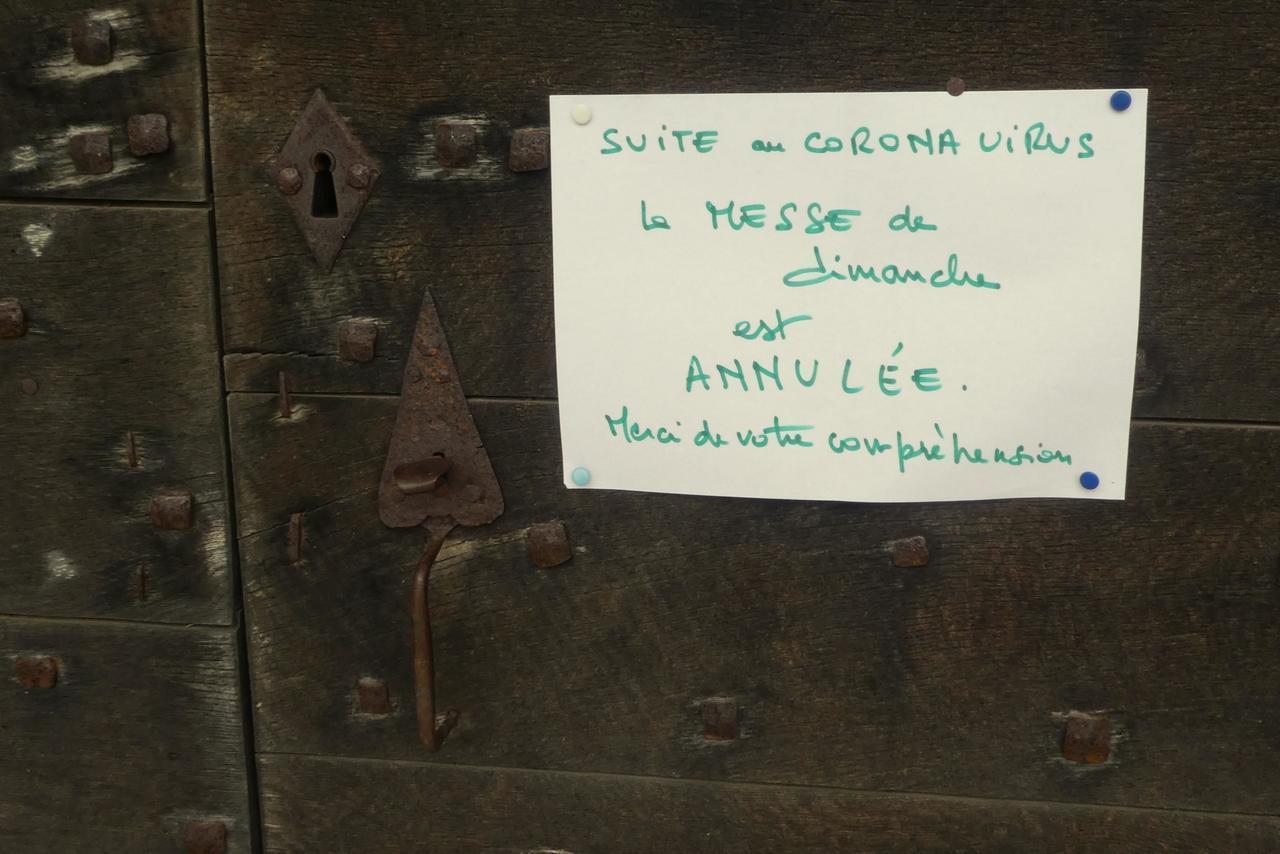 SUiTE au CORONA ViRUS
la MESSE de
dimanche
est
ANNULÉE.
Merci de votre comprèhension